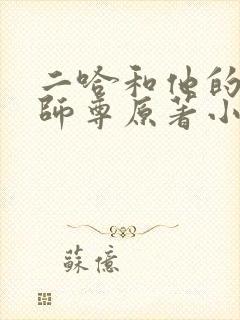 二哈和他的
師尊原著小
蘇億